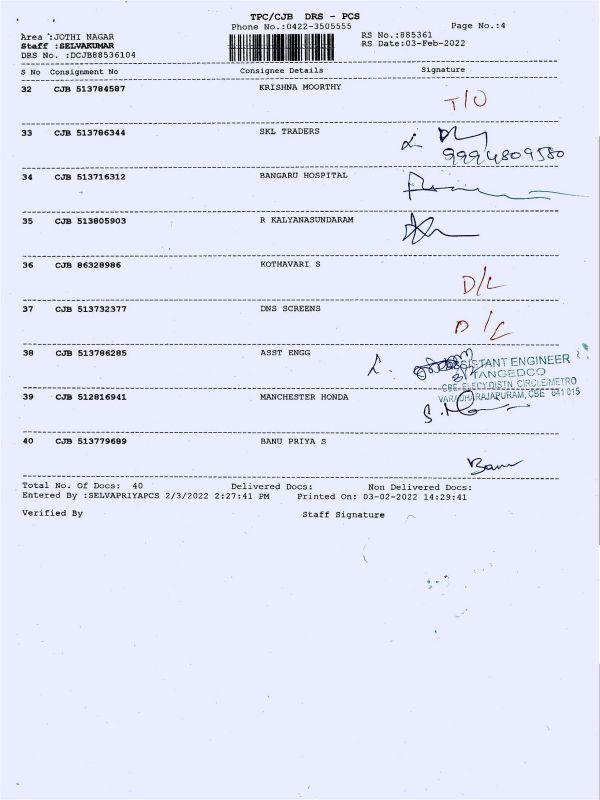 TPC/CJB DRS - PCS
Phone No.:0422-3505555 Page No.:4
Area :JOTHI NAGAR RS No.:885361
Staff :SELVAKUMAR RS Date:03-Feb-2022
DRS No. :DCJB88536104
S No Consignment No Consignee Details Signature
32 CJB 513784587 KRISHNA MOORTHY
T/O
33 CJB 513786344 SKL TRADERS
9994809580
34 CJB 513716312 BANGARU HOSPITAL
35 CJB 513805903 R KALYANASUNDARAM
36 CJB 86328986 KOTHAVARI S
D/L
37 CJB 513732377 DNS SCREENS
D/L
38 CJB 513786285 ASST ENGG
ASSISTANT ENGINEER
TANGEDCO
CBE. ELECY.DISTN. CIRCLE/METRO
VARADHARAJAPURAM, CBE 641 015
39 CJB 512816941 MANCHESTER HONDA
40 CJB 513779689 BANU PRIYA S
Banu
Total No. Of Docs: 40 Delivered Docs: Non Delivered Docs:
Entered By :SELVAPRIYAPCS 2/3/2022 2:27:41 PM Printed On: 03-02-2022 14:29:41
Verified By Staff Signature